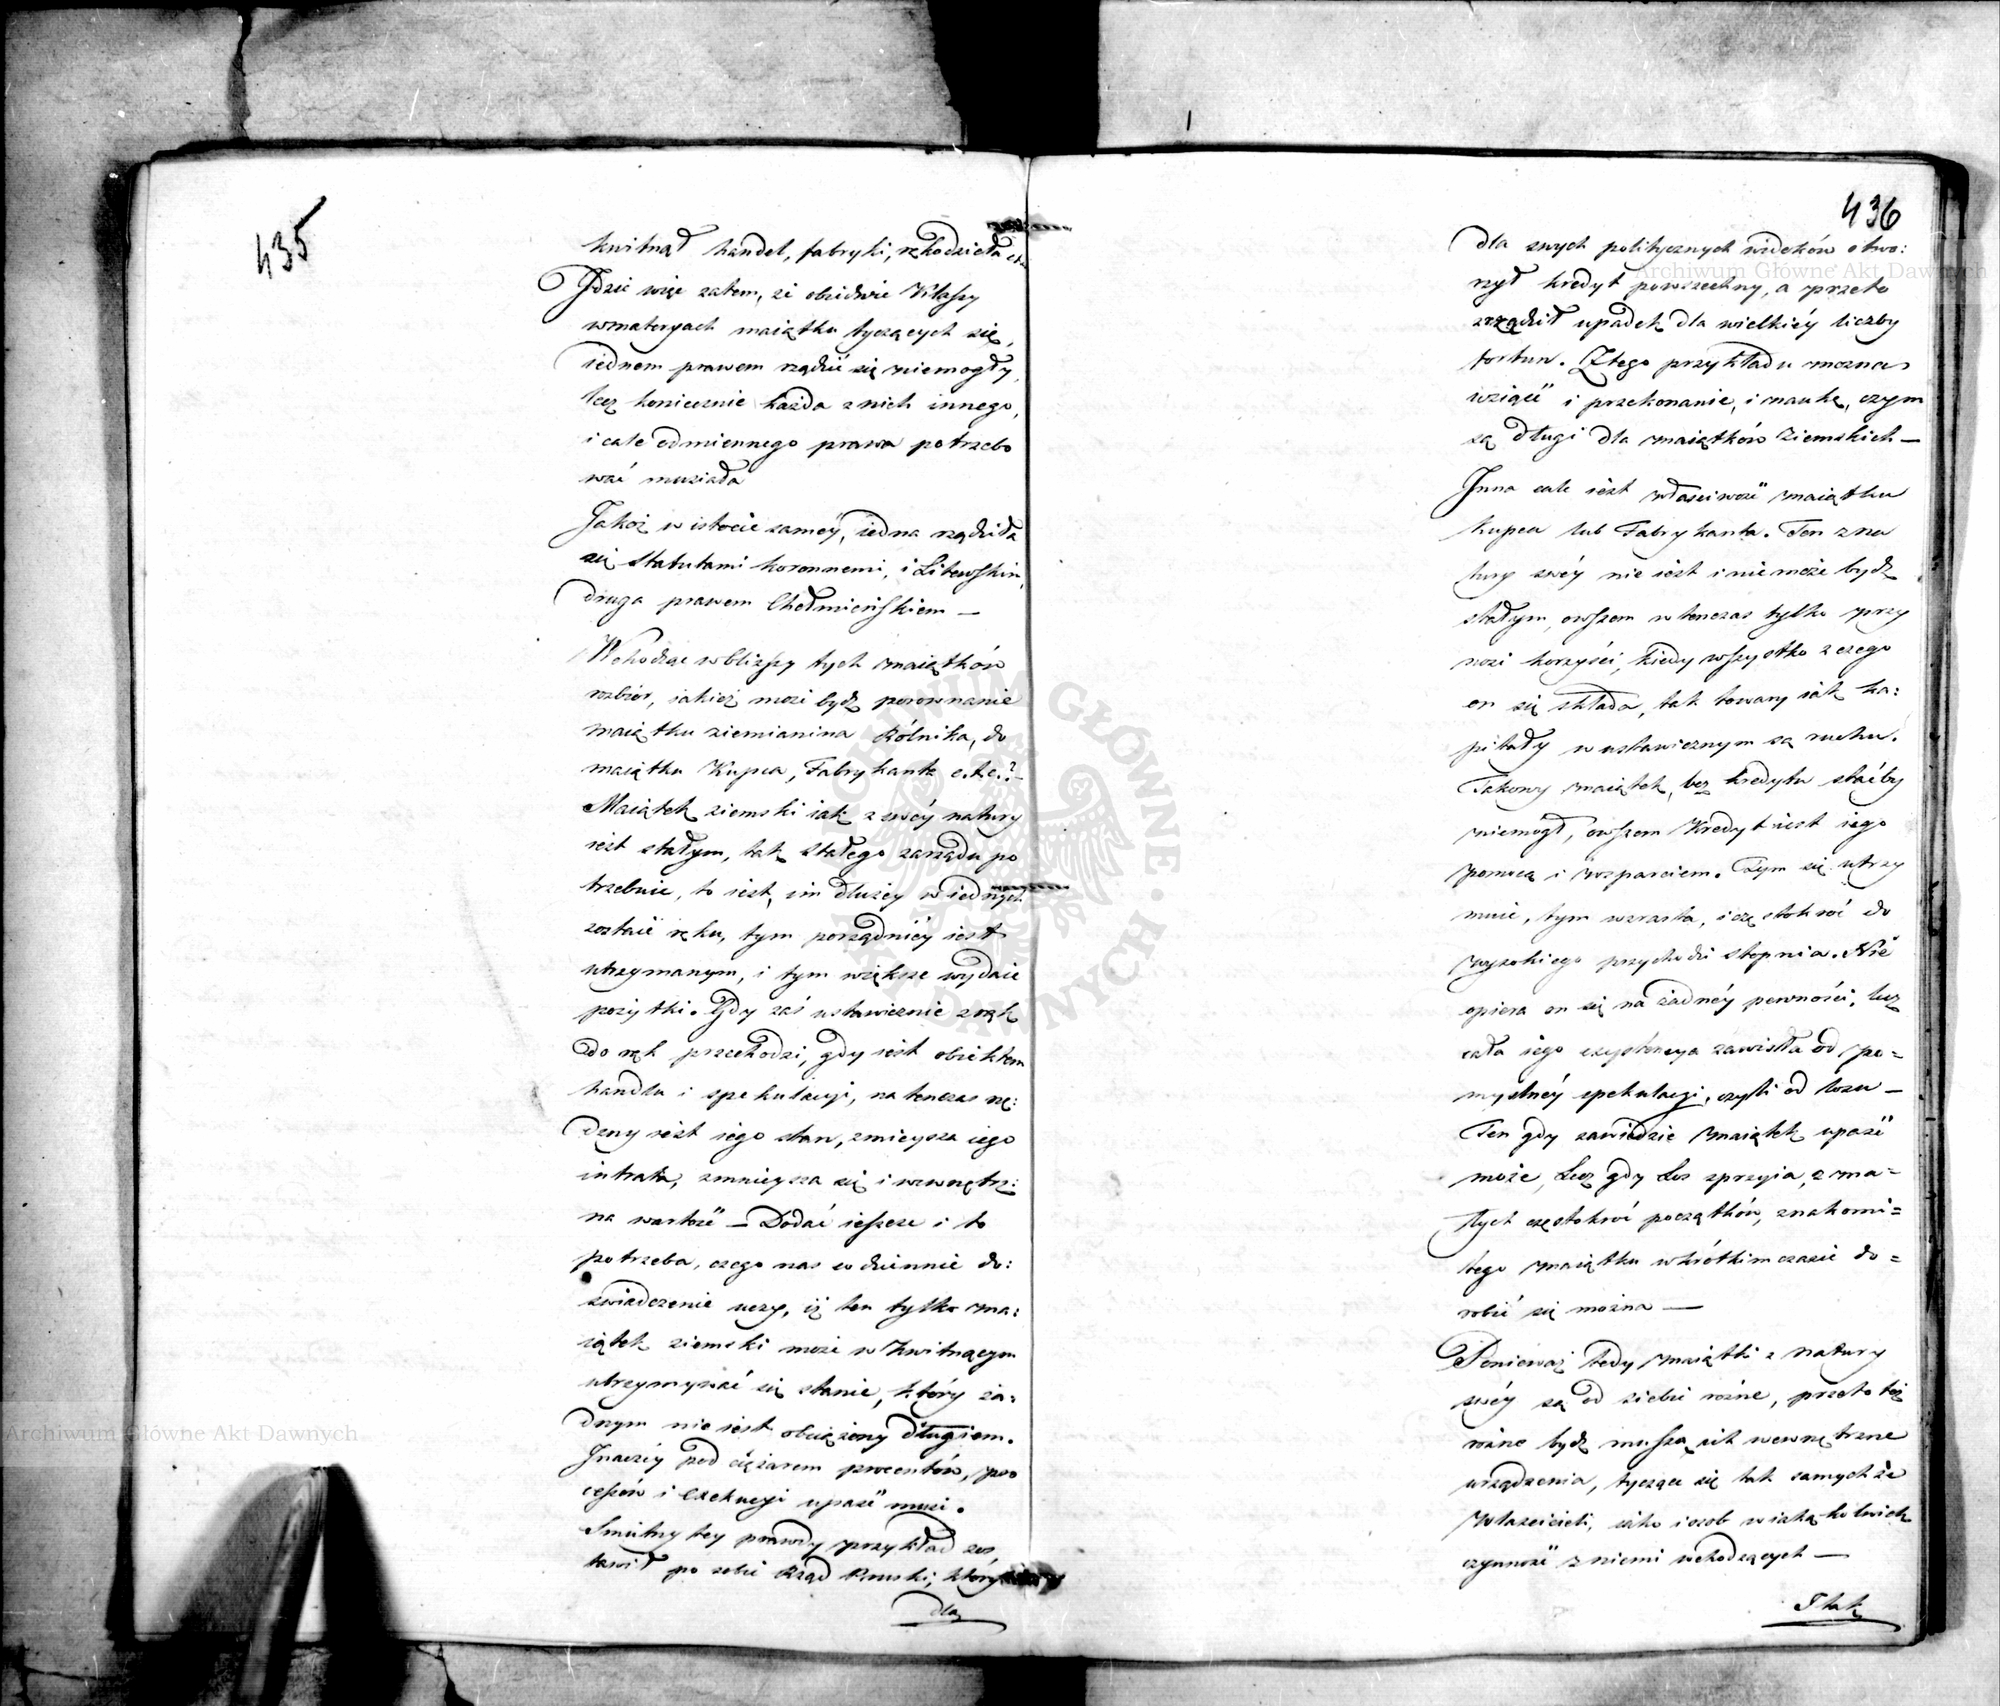 435
kwitnął handel, fabryki, rękodzieła etc
Jdzie więc zatem, że obiedwie Klassy
wmateryach maiątku tyczących się,
iednem prawem rządzić się niemogły,
lecz koniecznie każda znich innego,
i cale odmiennego prawa potrzebo
wać musiała
Jakoż w istocie saméy, iedna rządziła
się Statutami koronnemi, i Litewskim,
druga prawem Chełmińskiem —
Wchodząc wbliższy tych maiątków
rozbiór, iakież może bydź porownanie
maiątku ziemianina Rólnika, do
maiątku Kupca, Fabrykanta e.t.c.? —
Maiątek ziemski iak z swéy natury
iest stałym, tak stałego zarządu po
trzebuie, to iest, im dłużey w iednych
zostaie ręku, tym porządniéy iest
utrzymanym, i tym większe wydaie
pożytki. Gdy zaś ustawicznie z rąk
do rąk przechodzi, gdy iest obiektem
handlu i spekulacyi, natenczas nę:
dzny iest iego stan, zmieysza iego
intrata, zmnieysza się i wewnętrz:
na wartość — Dodać ieszcze i to
potrzeba, czego nas codziennie do:
świadczenie uczy, iż ten tylko ma:
iątek ziemski może w kwitnącym
utrzymywać się stanie, który ża:
dnym nie iest obciążony długiem.
Jnaczéy pod ciężarem procentów, pro
cessów i Exekucyi upaść musi.
Smutny tey prawdy przykład zos
tawił po sobie Rząd Pruski, który
dla
436
dla swych politycznych widoków otwo:
rzył kredyt powszechny, a przeto
zrządził upadek dla wielkiéy liczby
fortun. Ztego przykładu można
wziąść i przekonanie, i naukę, czym
są długi dla maiątków Ziemskich —
Jnna cale iest właściwość maiątku
Kupca lub Fabrykanta. Ten zna
tury swéy nie iest i niemoże bydź
stałym, owszem wtenczas tylko przy
nosi korzyści, kiedy wszystko z czego
on się składa, tak towary iak ka:
pitały w ustawicznym są ruchu.
Takowy maiątek, bez kredytu staćby
niemógł, owszem Kredyt iest iego
pomocą i wsparciem. Tym się utrzy
muie, tym wzrasta, i częstokroć do
wysokiego przychodzi stopnia. Nie
opiera on się na żadnéy pewności, lecz
cała iego exystencya zawisła od po=
myślnéy spekulacyi, czyli od losu —
Ten gdy zawiedzie maiątek upaść
może, Lecz gdy Los sprzyia, z ma=
łych częstokroć początków, znakomi=
tego maiątku wkrótkim czasie do=
robić się można —
Ponieważ tedy maiątki z natury
swéy są od siebie rożne, przeto też
rożne bydź muszą ich wewnętrzne
urządzenia, tyczące się tak samychże
Właścicieli, iako i osob w iakąkolwiek
czynność z niemi wchodzących —
I tak